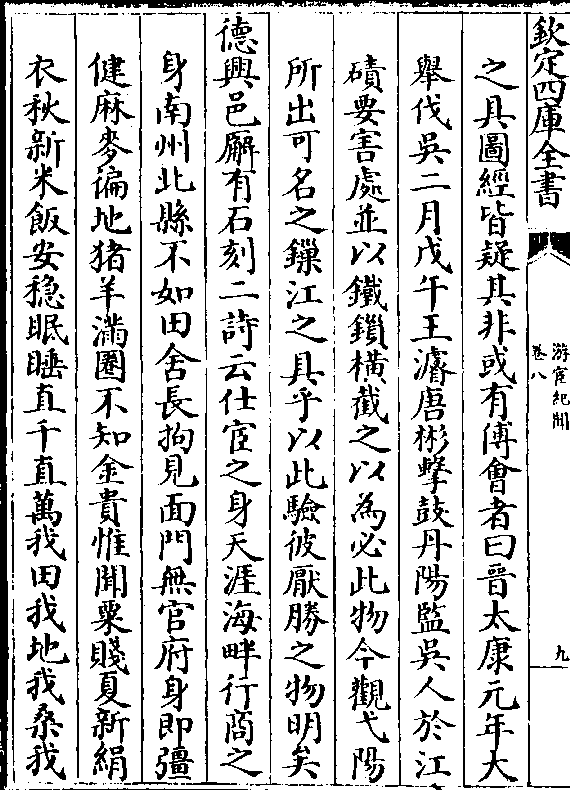 欽定四庫全書
游宦紀聞
卷八
九
之具圖經皆疑其非或有傅會者曰晉太康元年大
舉伐吳二月戊午王濬唐彬擊鼓丹陽監吳人於江
磧要害處並以鐵鎖橫截之以為必此物今觀弋陽
所出可名之鏁江之具乎以此驗彼厭勝之物明矣
德興邑廨有石刻二詩云仕宦之身天涯海畔行商之
身南州北縣不如田舍長拘見面門無官府身即彊
健麻麥徧地猪羊滿圈不知金貴惟聞粟賤夏新絹
衣秋新米飯安穩眠睡直千直萬我田我地我桑我